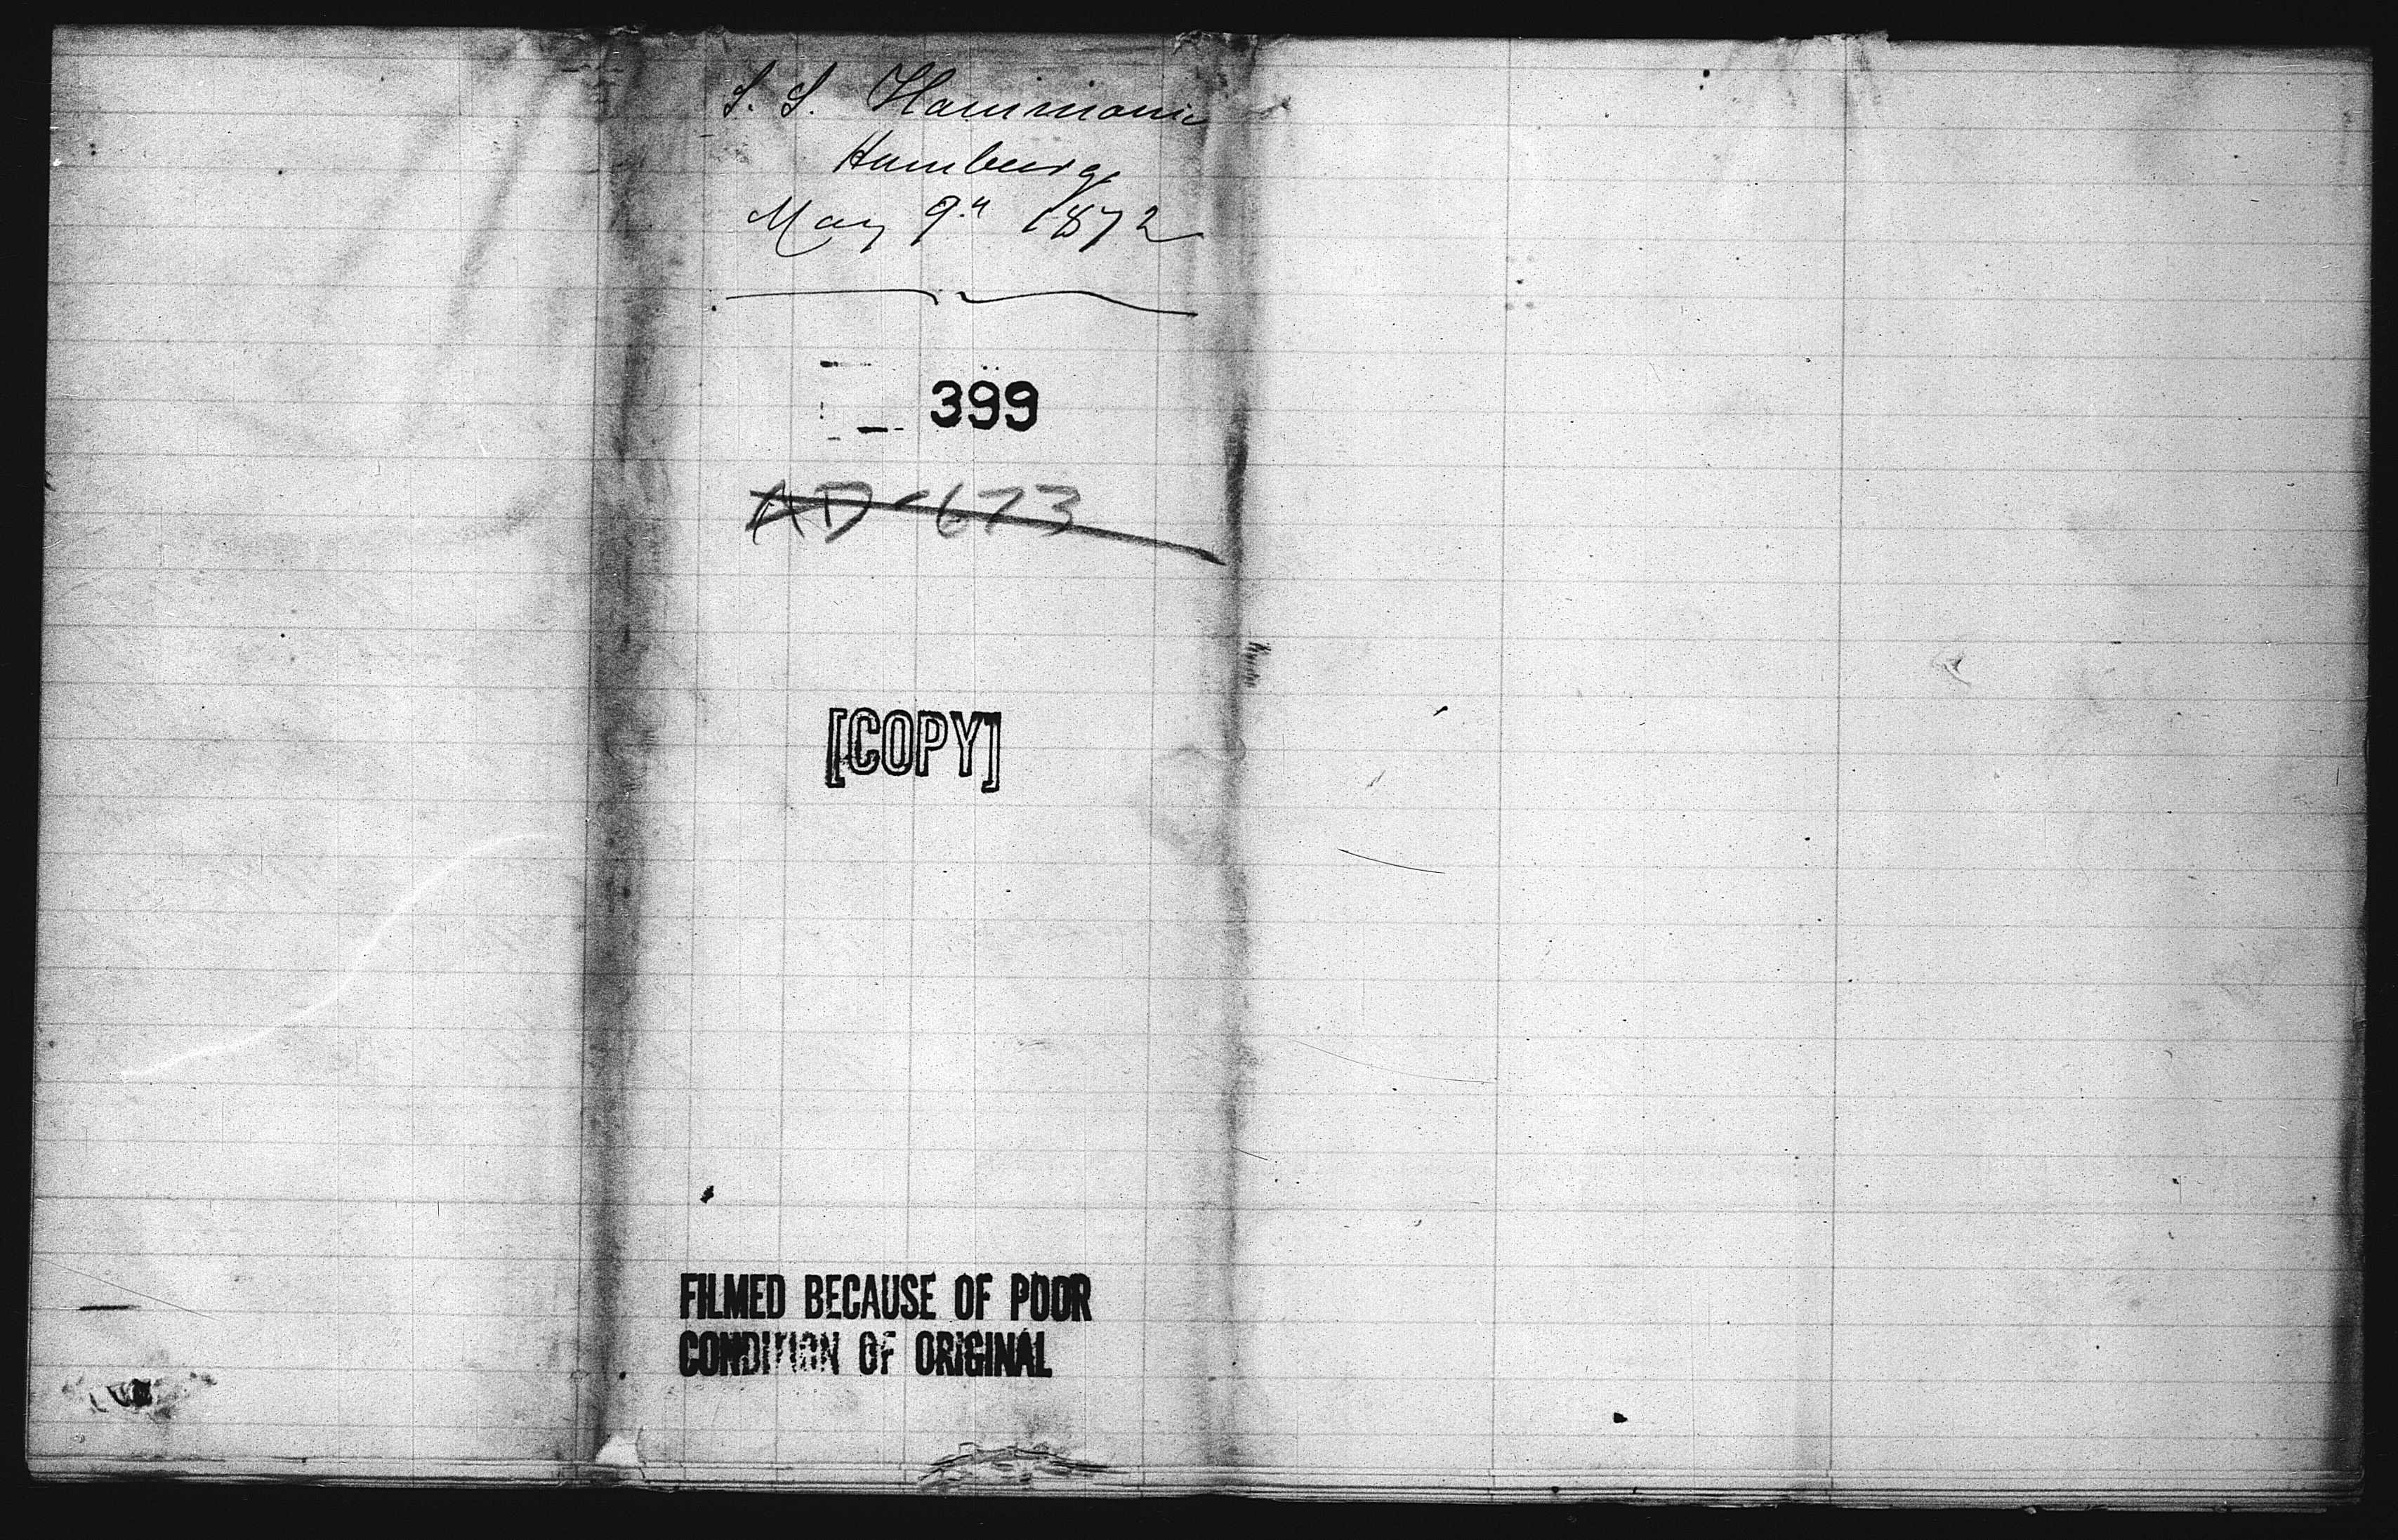 S. S. Hammonia
Hamburg
May 9" 1872
399
AD-673
[COPY]
FILMED BECAUSE OF POOR
CONDITION OF ORIGINAL